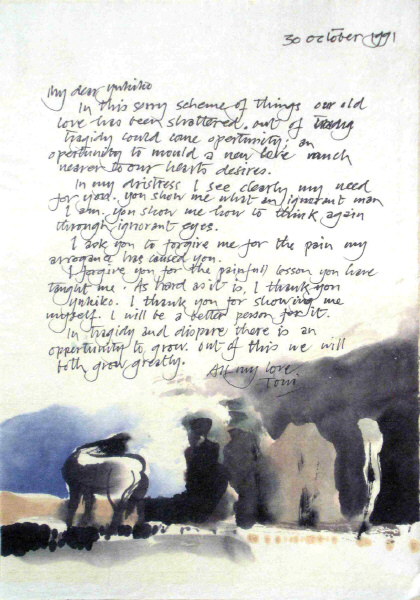 30 october 1991
My dear Yukiko
In this sorry scheme of things our old
love has been shattered. out of
tragidy could come opertunity, an
opertunity to mould a new love much
nearer to our hearts desires.
In my dristress I see clearly my need
for you. you show me what an ignorant man
I am. you show me how to think again
through ignorant eyes.
I ask you to forgive me for the pain my
arrogance has caused you.
I forgive you for the painfull lesson you have
taught me. As hard as it is, I thank you
Yukiko. I thank you for showing me
myself. I will be a better person for it.
In tragidy and dispare there is an
opportunity to grow. out of this we will
both grow greatly.
All my love
Toni